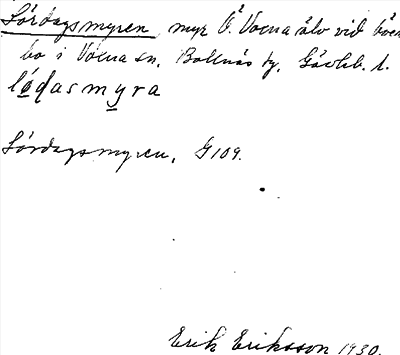 Lördagsmyren myr Ö. Voxna älv vid
bo i Voxna sn, Bollnäs tg, Gävleb. l.
lǫdasmyra
Lördagsmyren, G 109.
Erik Eriksson 1930.